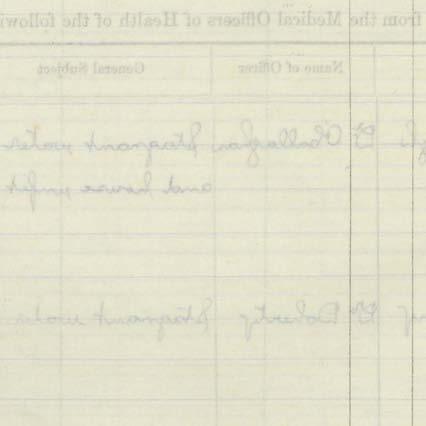 from the Medical Officers of Health of the followi
Name of Officer General Subject
Dr O'Callaghan Stagnant water
and house unfit
Dr Doherty Stagnant water